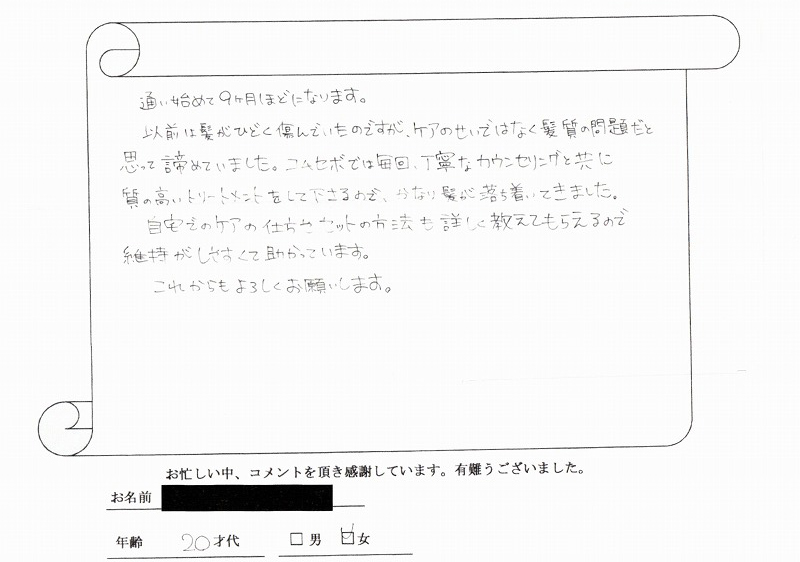 通い始めて9ヶ月ほどになります。
以前は髪がひどく傷んでいたのですが、ケアのせいではなく髪質の問題だと
思って諦めていました。コムセボでは毎回、丁寧なカウンセリングと共に
質の高いトリートメントをして下さるので、かなり髪が落ち着いてきました。
自宅でのケアの仕方やセットの方法も詳しく教えてもらえるので
維持がしやすくて助かっています。
これからもよろしくお願いします。
お忙しい中、コメントを頂き感謝しています。有難うございました。
お名前
年齢 20才代 □男 ☑女